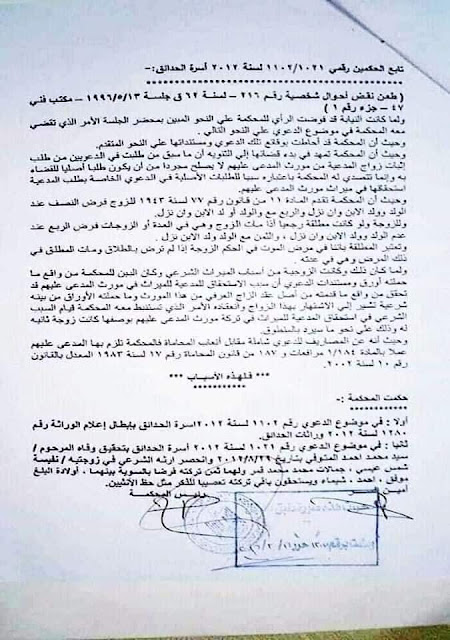 تابع الحكمين رقمي ١١٠٢/١٠٢١ لسنة ٢٠١٢ أسرة الحدائق:-
( طعن نقض أحوال شخصية رقم ٢١٦ – لسنة ٦٢ ق جلسة ١٩٩٦/٥/١٣ – مكتب فني
٤٧ – جزء رقم ١ )
ولما كانت النيابة قد فوضت الرأي للمحكمة علي النحو المبين بمحضر الجلسة الأمر الذي تقضي
معه المحكمة في موضوع الدعوي علي النحو التالي .
وحيث أن المحكمة قد أحاطت بوقائع تلك الدعوي ومستنداتها علي النحو المتقدم.
وحيث أن المحكمة تمهد في بدء قضائها إلي التنويه أن ما سبق من طلبت في الدعويين من طلب
إثبات زواج المدعية من مورث المدعى عليهم لا يصلح مجردا من أن يكون طلبا أصليا للقضاء
به وإنما تتصدي له المحكمة باعتباره سببا للطلبات الأصلية في الدعوي الخاصة بطلب المدعية
استحقاقها في ميراث مورث المدعي عليهم.
وحيث أن المحكمة تقدم المادة ١١ من قانون رقم ٧٧ لسنة ١٩٤٣ للزوج فرض النصف عند
الولد وولد الابن وان نزل والربع مع والولد أو لد الابن وان نزل.
وللزوجة ولو كانت مطلقة رجعيا إذا مات الزوج وهي في العدة أو الزوجات فرض الربع عند
عدم الولد وولد الابن وان نزل ، والثمن مع الولد ولد الابن نزل .
وتعتبر المطلقة بائنا في مرض الموت في الحكم الزوجة إذا لم ترض بالطلاق ومات المطلق في
ذلك المرض وهي في عدته .
ولما كان ذلك وكانت الزوجية من أسباب الميراث الشرعي وكان البين للمحكمة من واقع ما
حملته أورق ومستندات الدعوي أن سبب الاستحقاق للمدعية للميراث في مورث المدعى عليهم قد
تحقق من واقع ما قدمته من أصل عقد الزاج العرفي من هذا المورث وما حملته الأوراق من بينه
شرعية تشير إلي الاشتهار بهذا الزواج وانعقاده الأمر الذي تستنبط معه المحكمة قيام السبب
الشرعي في استحقاق المدعية للميراث في تركة مورث المدعي عليهم بوصفها كانت زوجة ثانيه
له وذلك علي نحو ما سيرد بالمنطوق.
وحيث أنه عن المصاريف للدعوي شاملة مقابل أتعاب المحاماة فالمحكمة تلزم بها المدعي عليهم
عملا بالمادة ١/١٨٤ مرافعات و ١٨٧ من قانون المحاماة رقم ١٧ لسنة ١٩٨٣ المعدل بالقانون
رقم ١٠ لسنة ٢٠٠٢.
*** فـلـهـذه الأسـبـاب ***
حكمت المحكمة :-
أولا : في موضوع الدعوي رقم ١١٠٢ لسنة ٢٠١٢اسرة الحدائق بإبطال إعلام الوراثة رقم
١٢٨٠ لسنة ٢٠١٢ وراثات الحدائق.
ثانيا : في موضوع الدعوي رقم ١٠٢١ لسنة ٢٠١٢ أسرة الحدائق بتحقيق وفاه المرحوم /
سيد محمد احمد المتوفي بتاريخ ٢٠١٢/٨/٢٦ وانحصر ارثه الشرعي في زوجتيه / نفيسة
شمس عيسي ، جمالات محمد محمد قمر ولهما ثمن تركته فرضا بالسوية بينهما ، أولادة البلغ
موفق ، احمد ، شيماء ويستحقون باقي تركته تعصيبا للذكر مثل حظ الأنثيين.
أمين السر
رئيس المحكمـة